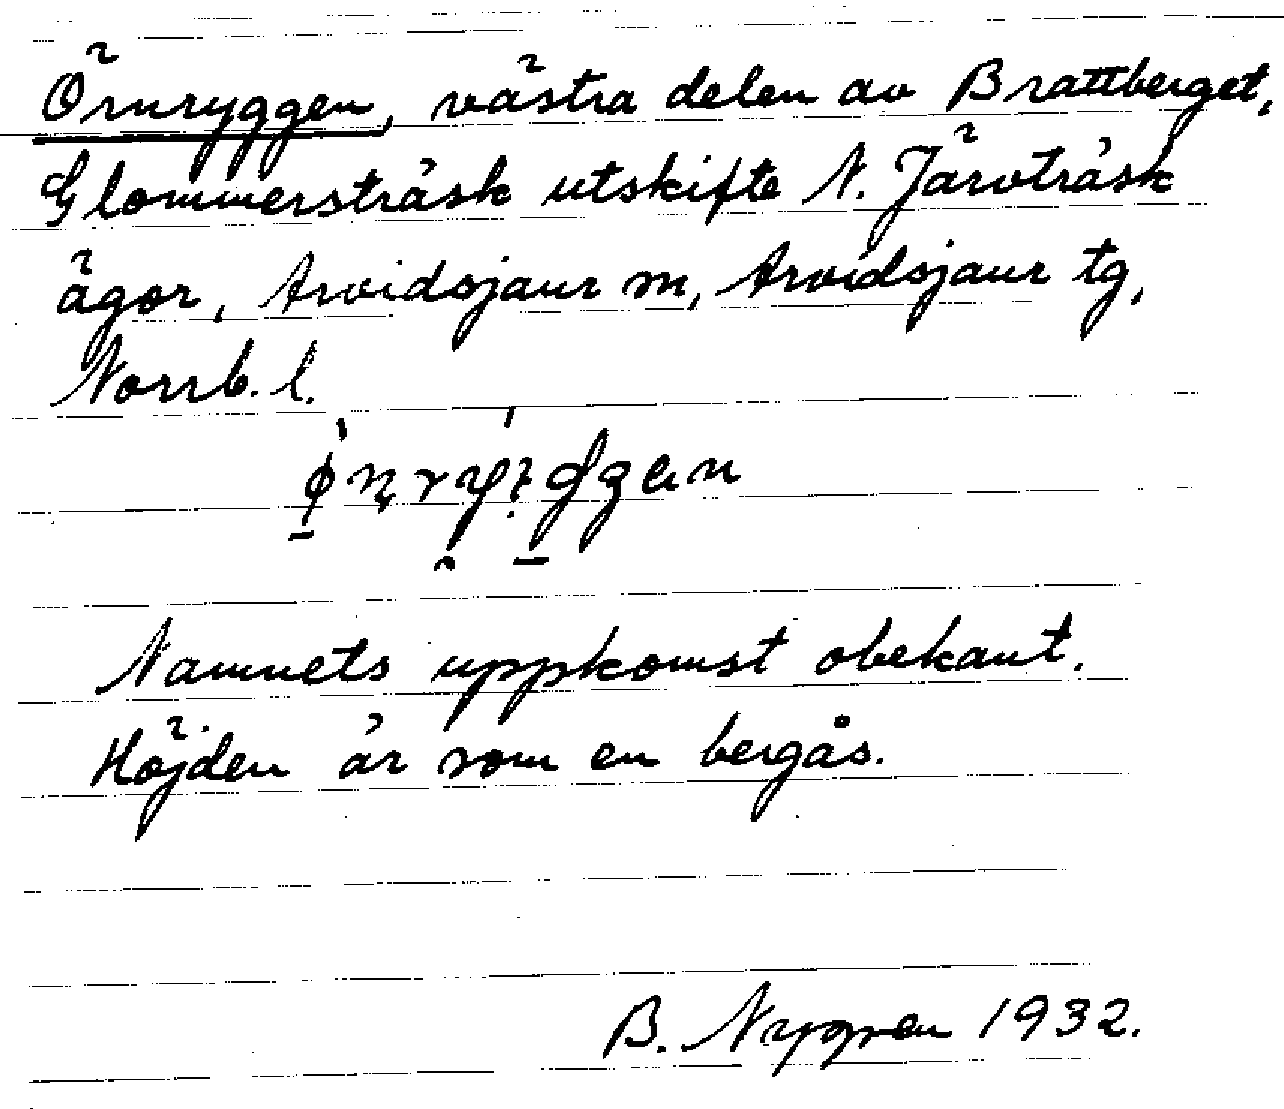 Örnryggen, västra delen av Brattberget,
Glommersträsk utskifte N. Järvträsk
ägor, Arvidsjaur sn, Arvidsjaur tg,
Norrb. l.
Namnets uppkomst obekant.
Höjden är som en bergås.
B. Nygren 1932.